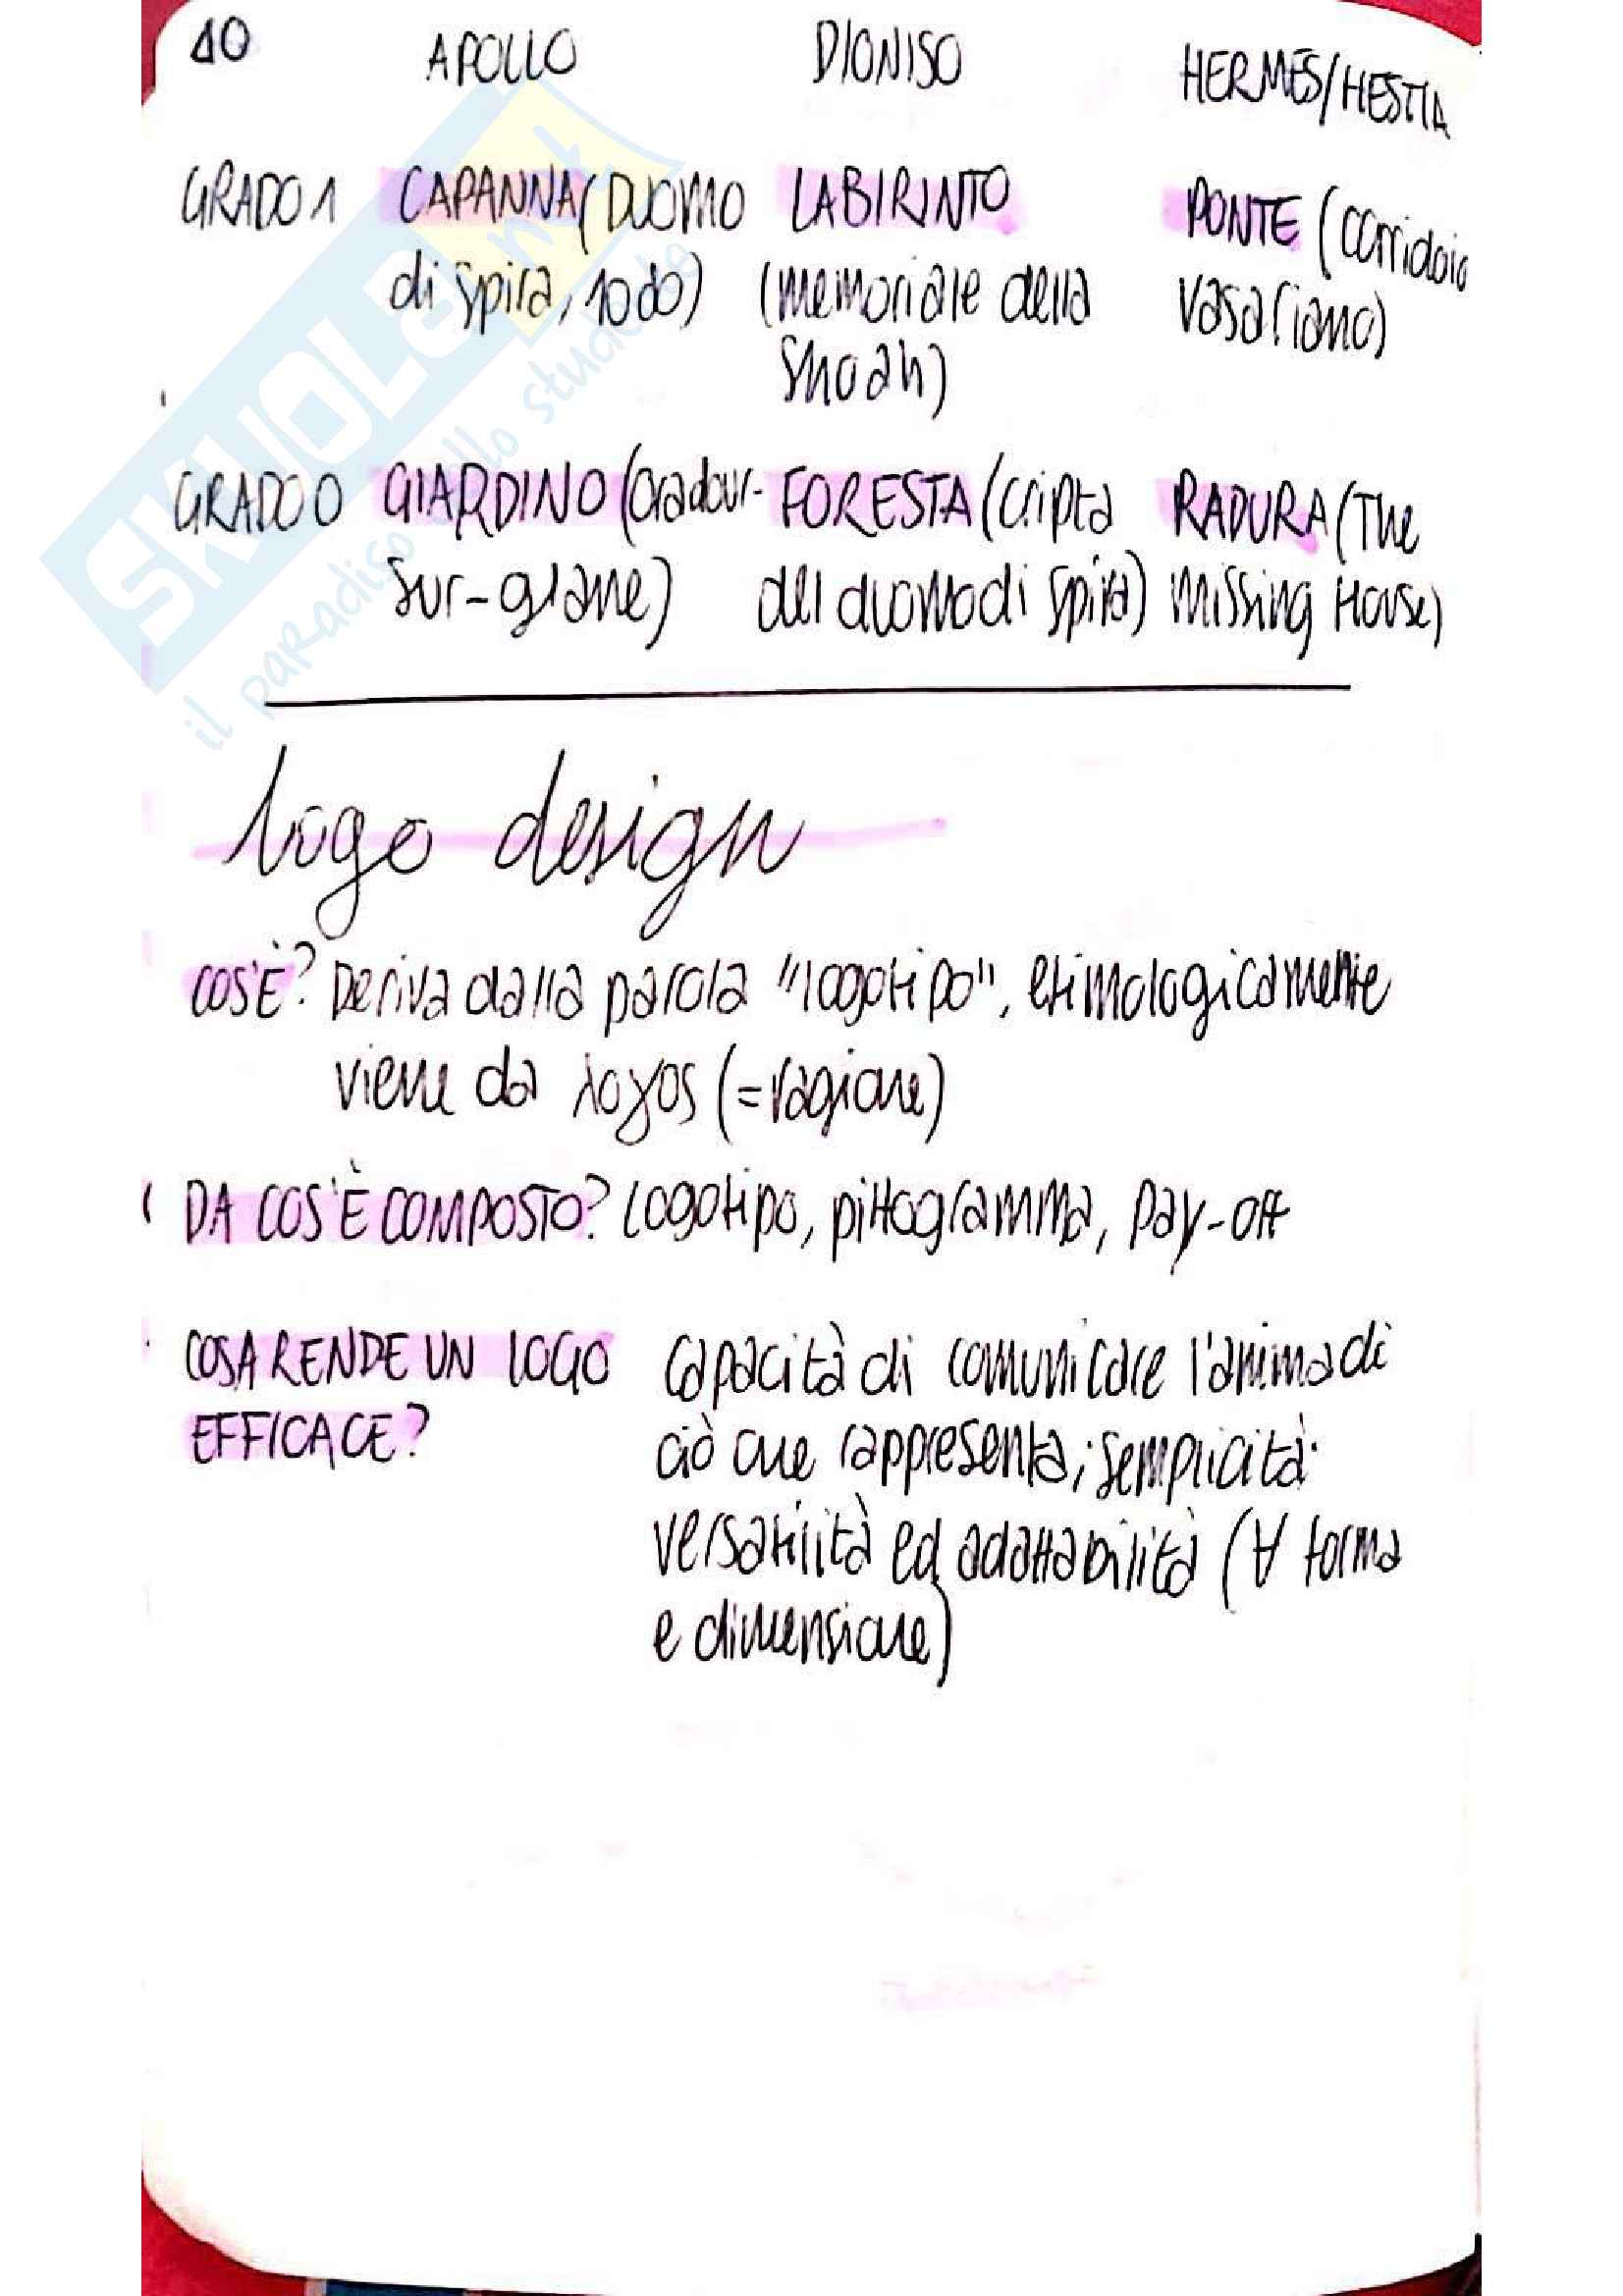 10 APOLLO DIONISO HERMES/HESTIA
GRADO 1 CAPANNA (DUOMO LABIRINTO PONTE (corridoio
di Spira, 1080) (memoriale della vasariano)
Shoah)
GRADO 0 GIARDINO (Oradour- FORESTA (cripta RADURA (The
sur-glane) del duomo di Spira) missing House)
logo design
COS'È? Deriva dalla parola "logotipo", etimologicamente
viene da λογος (=ragione)
DA COS'È COMPOSTO? Logotipo, pittogramma, pay-off
COSA RENDE UN LOGO capacità di comunicare l'anima di
EFFICACE? ciò che rappresenta; semplicità;
versatilità ed adattabilità (∀ forma
e dimensione)
SKUOLA.net
il paradiso dello studente